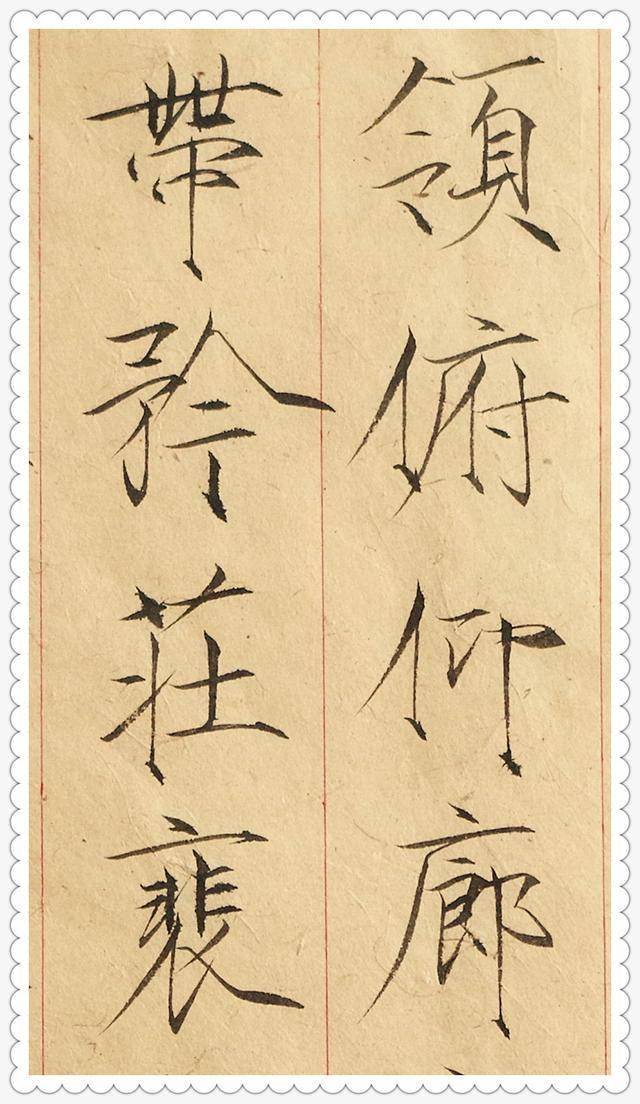 領俯仰廊
帶矜莊裴